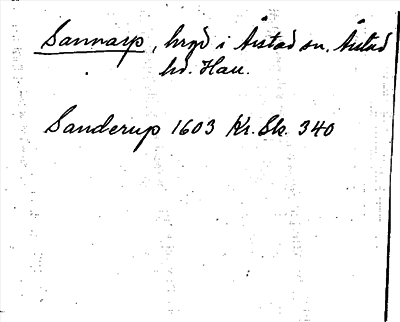 Sannarp, hrgd i Årstad sn. Årstad
hd. Hall.
Sanderup 1603 Kr. Sk. 340